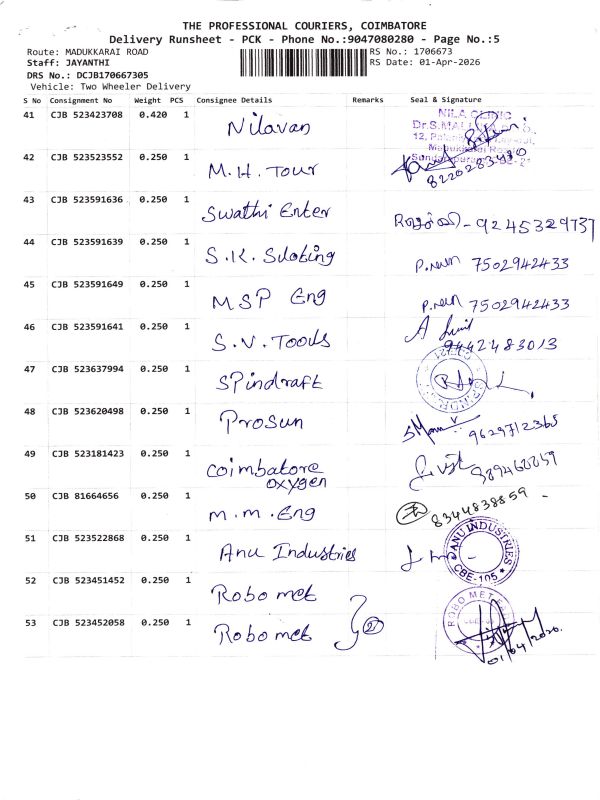 THE PROFESSIONAL COURIERS, COIMBATORE
Delivery Runsheet - PCK - Phone No.:9047080280 - Page No.:5
Route: MADUKKARAI ROAD RS No.: 1706673
Staff: JAYANTHI RS Date: 01-Apr-2026
DRS No.: DCJB170667305
Vehicle: Two Wheeler Delivery
S No Consignment No Weight PCS Consignee Details Remarks Seal & Signature
41 CJB 523423708 0.420 1 Nilavan NILA CLINIC
42 CJB 523523552 0.250 1 M.H. Tour 8220283430
43 CJB 523591636 0.250 1 Swathi Enter - 9245329737
44 CJB 523591639 0.250 1 S.K. 7502942433
45 CJB 523591649 0.250 1 MSP Eng 7502942433
46 CJB 523591641 0.250 1 S.V. Tools 9442483013
47 CJB 523637994 0.250 1 Spindraft
48 CJB 523620498 0.250 1 Prosun 9629712365
49 CJB 523181423 0.250 1 Coimbatore
oxygen
50 CJB 81664656 0.250 1 M.M.Eng 8344838859
51 CJB 523522868 0.250 1 Anu Industries ANU INDUSTRIES CBE-105
52 CJB 523451452 0.250 1 Robo met
53 CJB 523452058 0.250 1 Robo met 2 ROBO MET
01/04/2026.